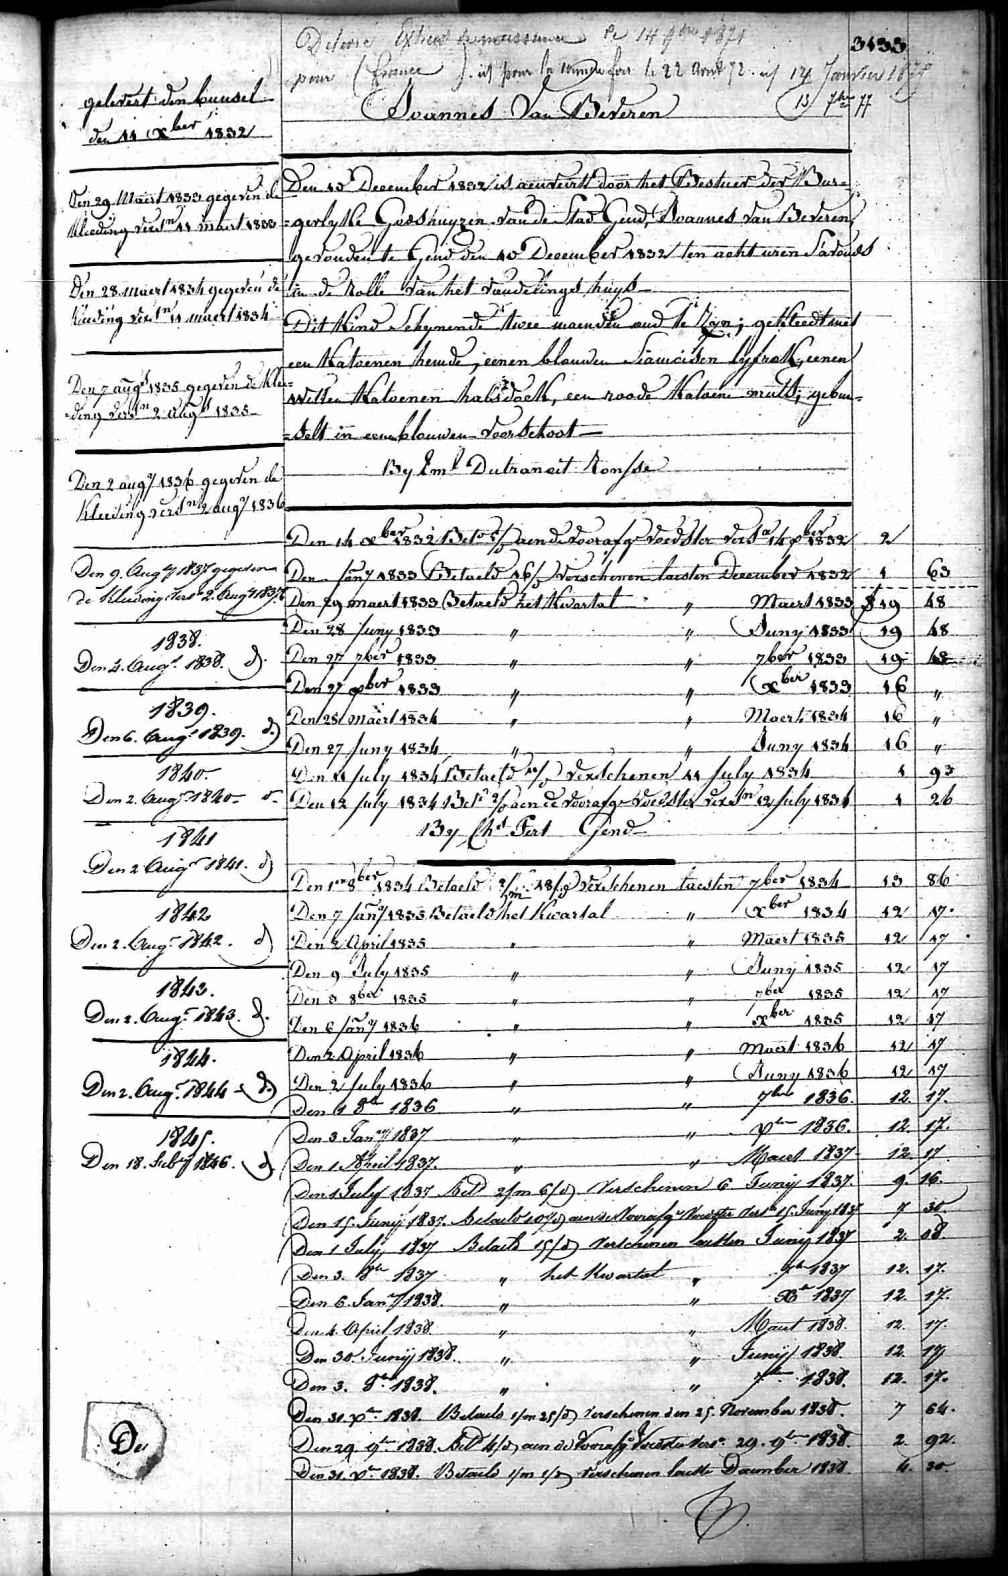 Delivré Extrait de naissance le 14 9bre 1871
3133
pour France
le 22 Avril 72
Janvier 1877
Joannes Van Beveren
gelevert den bunsel
den 11 xber 1832
Den 29 Maert 1833 gegeven de
Kleeding verst.n 11 maert 1833
Den 28 maert 1834 gegeven de
Kleeding verst.n 11 maert 1834
Den 7 augt 1835 gegeven de Klee=
=ding verst.n 2 augt 1835
Den 2 augt 1836 gegeven de
Kleeding verst.n 2 augt 1836
Den 9. Augt 1837 gegeven
de Kleeding verst 2. Augt 1837
1838.
Den 4. Augt. 1838. d.
1839.
Den 6. Augt 1839. d.
1840.
Den 2. Augt 1840
1841
Den 2 Augt 1841. d
1842
Den 2. Augt 1842. d
1843.
Den 2. Augt 1843. d.
1844.
Den 2. Augt. 1844 d.
1845.
Den 18. Feby 1846. d
Den 10 December 1832 is aenveirt door het Bestier der Bur=
=gerlyke Godshuyzen van de Stad Gend, Joannes Van Beveren,
gevonden te Gend den 10 December 1832 ten acht uren S'avonds
in de Rolle van het vondelings huys
Dit Kind Schynende twee maenden oud te Zyn; gekleed met
een Katoenen hemde, eenen blauwen Siamoisen lyfrok, eenen
witten Katoenen halsdoek, een roode Katoene muts, gebun=
=delt in eenen blauwen voorschoot
By Eml Dutranoit Ronsse
Den 14 xber 1832 Bet. aen de voorafge voedster verst 14 xber 1832 2
Den Jany 1833 Betaeld 16/ verschenen laesten December 1832 1 63
Den 29 maert 1833 Betaeld het Kwartal " Maert 1833 19 48
Den 28 Juny 1833 " " Juny 1833 19 48
Den 27 7ber 1833 " " 7ber 1833 19 48
Den 27 xber 1833 " " xber 1833 16 "
Den 28 maert 1834 " " Maert 1834 16 "
Den 27 Juny 1834 " " Juny 1834 16 "
Den 11 July 1834 Betaeld verschenen 11 July 1834 1 93
Den 12 July 1834 Bet. aen de voorafge voedster verst.n 12 July 1834 1 26
By Fert Gend
Den 1en 8ber 1834 Betaeld 2/m 18/d verschenen laesten 7ber 1834 13 86
Den 7 Jany 1835 Betaeld het Kwartal " xber 1834 12 17.
Den 2 April 1835 " " Maert 1835 12 17
Den 9 July 1835 " Juny 1835 12 17
Den 3 8ber 1835 " " 7ber 1835 12 17
Den 6 Jany 1836 " " xber 1835 12 17
Den 2 April 1836 " " Maert 1836 12 17
Den 2 July 1836 " " Juny 1836 12 17
Den 1 8br 1836 " " 7bre 1836. 12. 17.
Den 3. Jany 1837 " " xbre 1836. 12. 17.
Den 1 April 1837. " " Maert 1837 12. 17
Den 1 July 1837 Betd 2/m 6/d verschenen 6 Juny 1837. 9. 16.
Den 15 Junij 1837. Betaeld aen de Voorafge Voedster verst 15. Juny 1837 7 30.
Den 1 July 1837 Betaeld 15/d verschenen laetsten Junij 1837 2. 08.
Den 3. 8br 1837 " het Kwartal " 7br 1837 12. 17.
Den 6. Jany 1838. " " Xbr 1837 12. 17.
Den 4. April 1838. " " Maert 1838. 12. 17.
Den 30. Junij 1838. " " Junij 1838. 12. 17
Den 3. 8br 1838. " " 7br 1838. 12. 17.
Den 31. xbr 1838. Betaeld 1/m 25/d verschenen den 25. November 1838. 7 64.
Den 29 9br 1838. Betd 4/d aen de Voorafge Voedster verst. 29. 9br 1838 2. 92.
Den 31. xbr 1838. Betaeld 1/m verschenen laetste December 1838 4. 30.